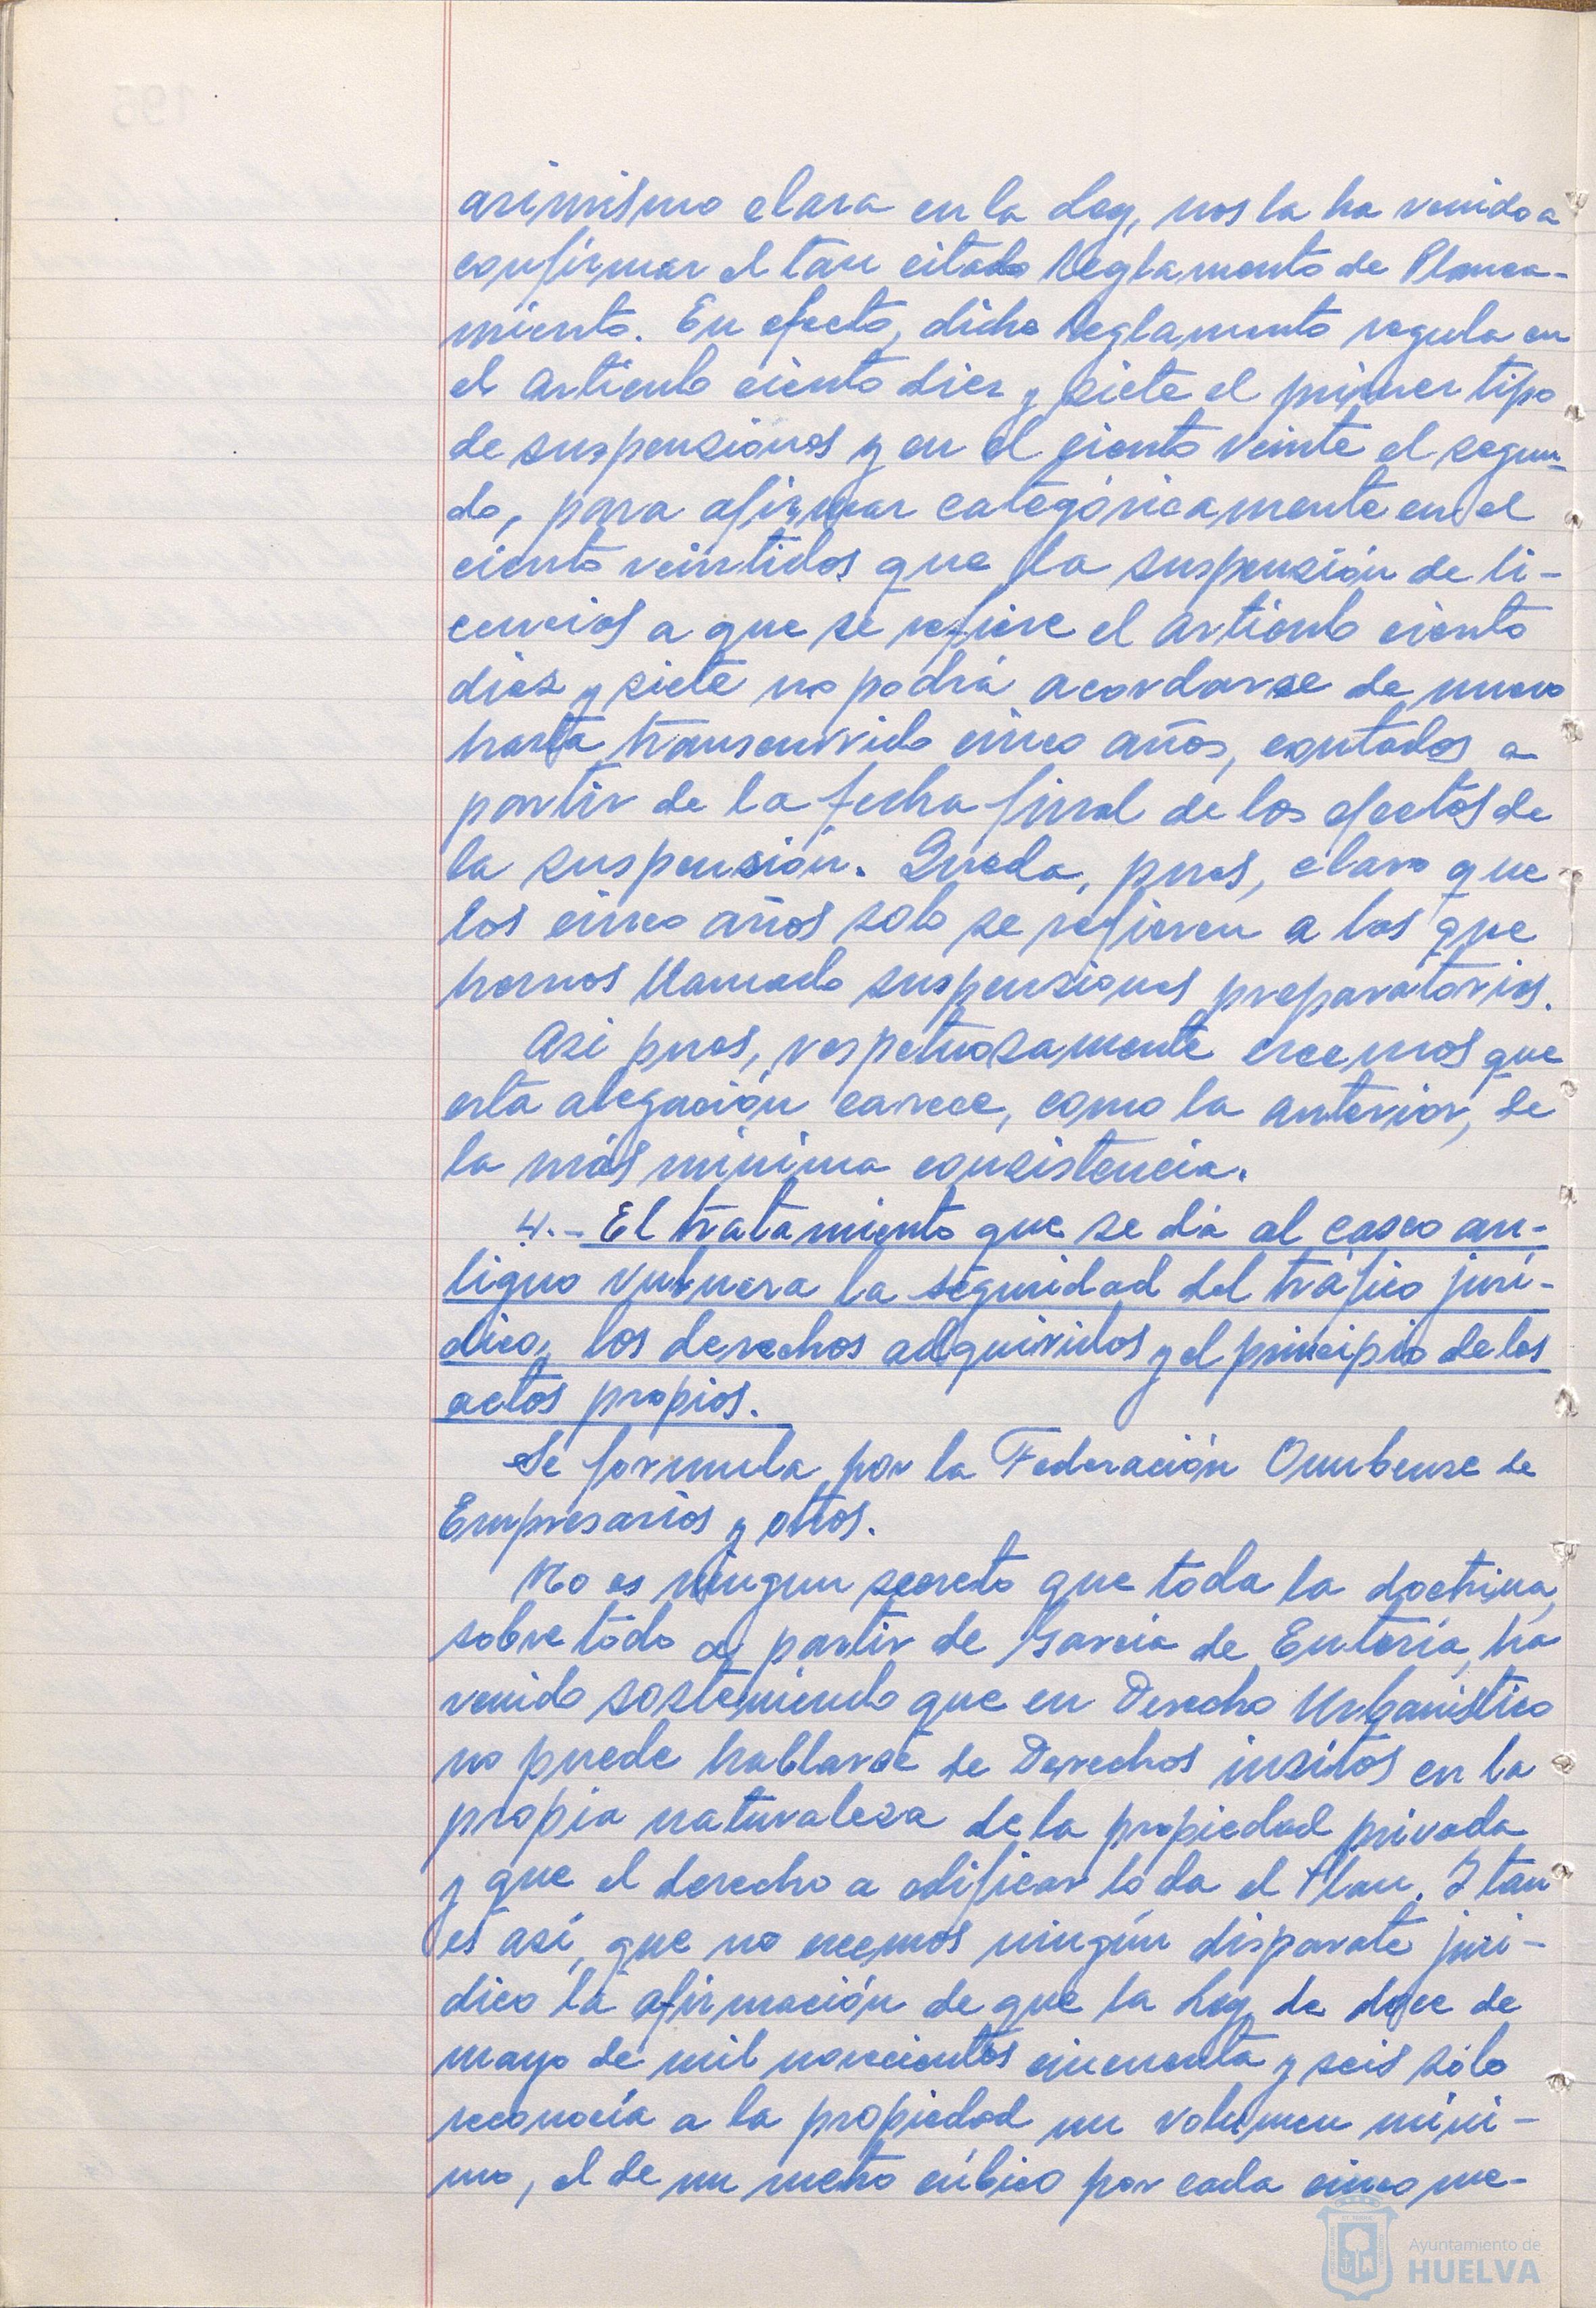 asimismo clara en la Ley, nos la ha venido a
confirmar el tan citado Reglamento de Planea-
miento. En efecto, dicho Reglamento regula en
el artículo ciento diez y siete el primer tipo
de suspensiones y en el ciento veinte el segun-
do, para afirmar categóricamente en el
ciento veintidos que la suspensión de li-
cencias a que se refiere el artículo ciento
diez y siete no podrá acordarse de nuevo
hasta transcurrido cinco años, contados a
partir de la fecha final de los efectos de
la suspensión. Queda, pues, claro que
los cinco años solo se refieren a las que
hemos llamado suspensiones preparatorias.
Asi pues, respetuosamente creemos que
esta alegación carece, como la anterior, de
la más minima consistencia.
4.- El tratamiento que se dá al casco an-
tiguo vulnera la seguridad del tráfico jurí-
dico, los derechos adquiridos y el principio de los
actos propios.
Se formula por la Federación Onubense de
Empresarios y otros.
No es ningun secreto que toda la doctrina,
sobre todo a partir de Garcia de Enteria, ha
venido sosteniendo que en Derecho Urbanistico
no puede hablarse de Derechos insitos en la
propia naturaleza de la propiedad privada
y que el derecho a edificar lo da el Plan. Y tan
es así, que no creemos ningún disparate jurí-
dico la afirmación de que la Ley de doce de
mayo de mil novecientos cincuenta y seis sólo
reconocía a la propiedad un volumen míni-
mo, el de un metro cúbico por cada cinco me-
Ayuntamiento de
HUELVA